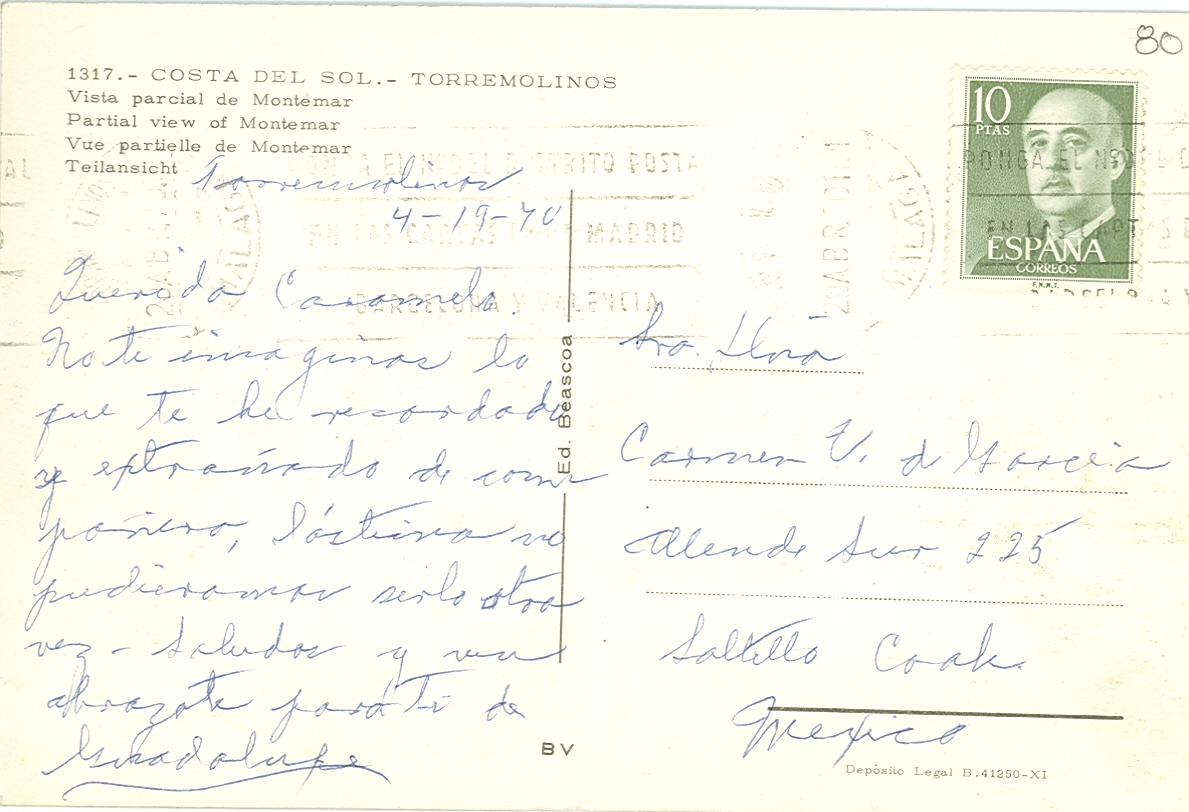 80
1317.- COSTA DEL SOL.- TORREMOLINOS
Vista parcial de Montemar
Partial view of Montemar
Vue partielle de Montemar
Teilansicht
Torremolinos
4-19-70
Querida Caramelo.
No te imaginas lo
que te he recordado
y extrañado de com
pañera, lástima no
pudieramos serlo otra
vez - Saludos y un
abrazote para ti de
Guadalupe
Ed. Beascoa
BV
10
PTAS
ESPAÑA
CORREOS
F.N.M.T.
PONGA EL Nº
DISTRITO POSTAL
EN LAS CARTAS PARA MADRID
BARCELONA Y VALENCIA
21 ABR
Sra.
Carmen V. de García
Allende Sur 225
Saltillo Coah.
Mexico
Depósito Legal B.41250-XI